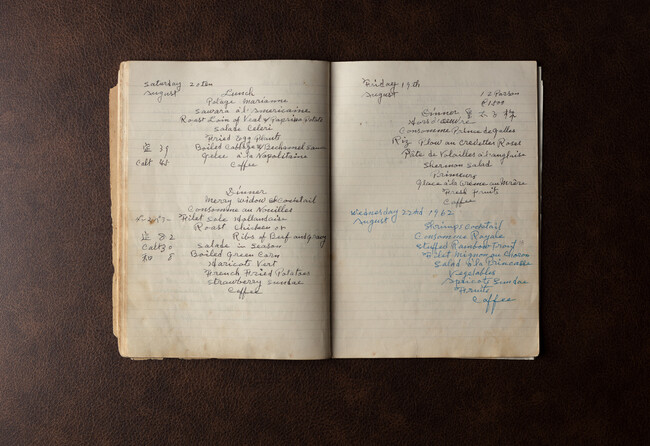 Saturday 20th
August
Lunch
Potage Marianne
Sawara à l'americaine
Roast Loin of Veal & Paprica Potato
Salade Celeri
Fried Egg Plants
39 Boiled Cabbage & Bechamel
Calt 45 Gelee à la Napolitaine
Coffee
Dinner
Merry Widow Cockstail
Consomme au Noeilles
Filet Sole Hollandaise
Roast Chicken or
2 Ribs of Beef and gravy
Calt 30 Salade in Season
8 Boiled Green Corn
Haricots Vert
French Fried Potatoes
Strawberry Sundae
Coffee
Friday 19th
August 12 Person
¥1500
Dinner
Hors d'oeuvre
Consomme Prince de Galles
Riz Pilow au Crevettes Rose
Pâte de Volailles à l'anglaise
Sherman Salad
Primeurs
Glace à la Creme
Fresh Fruits
Coffee
Wednesday 22nd 1962
August
Shrimps Cocktail
Consomme Royale
Stuffed Rainbow trout
Filet Mignon au
Salad à la Princesse
Vegetables
Apricots Sundae
Fruits
Coffee